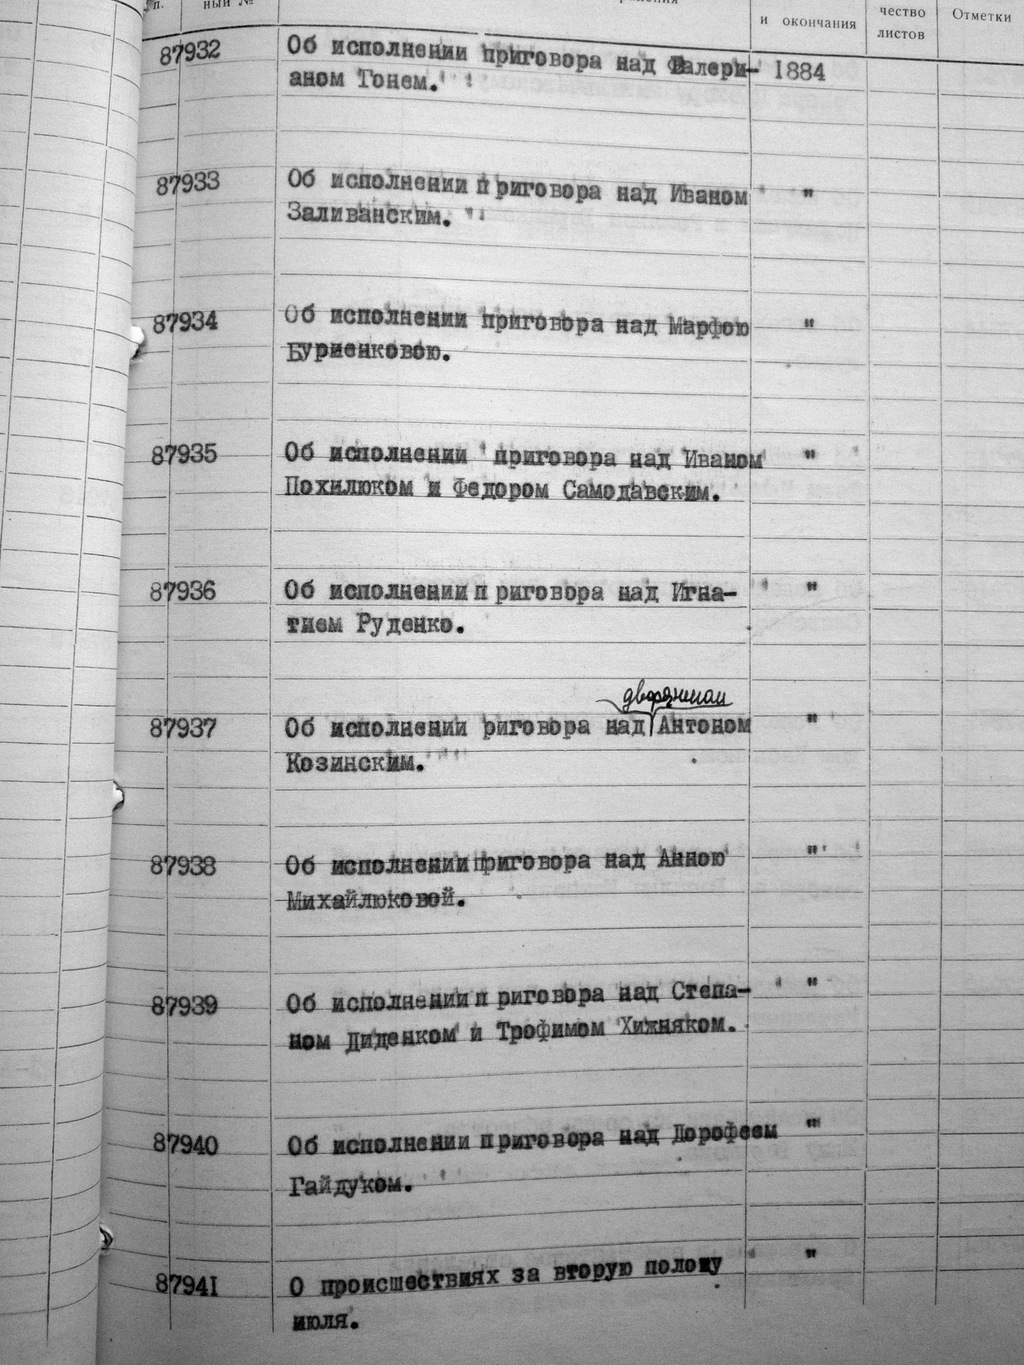 п. ный №
и окончания
чество
листов
Отметки
87932 Об исполнении приговора над Валери- 1884
аном Тонем.
87933 Об исполнении приговора над Иваном "
Заливанским.
87934 Об исполнении приговора над Марфою "
Буриенковою.
87935 Об исполнении приговора над Иваном "
Похилюком и Федором Самодавским.
87936 Об исполнении п риговора над Игна- "
тием Руденко.
дворянином
87937 Об исполнении риговора над Антоном "
Козинским.
87938 Об исполнении приговора над Анною "
Михайлюковой.
87939 Об исполнении п риговора над Степа- "
ном Диденком и Трофимом Хижняком.
87940 Об исполнении приговора над Дорофеем "
Гайдуком.
87941 О происшествиях за вторую половину "
июля.